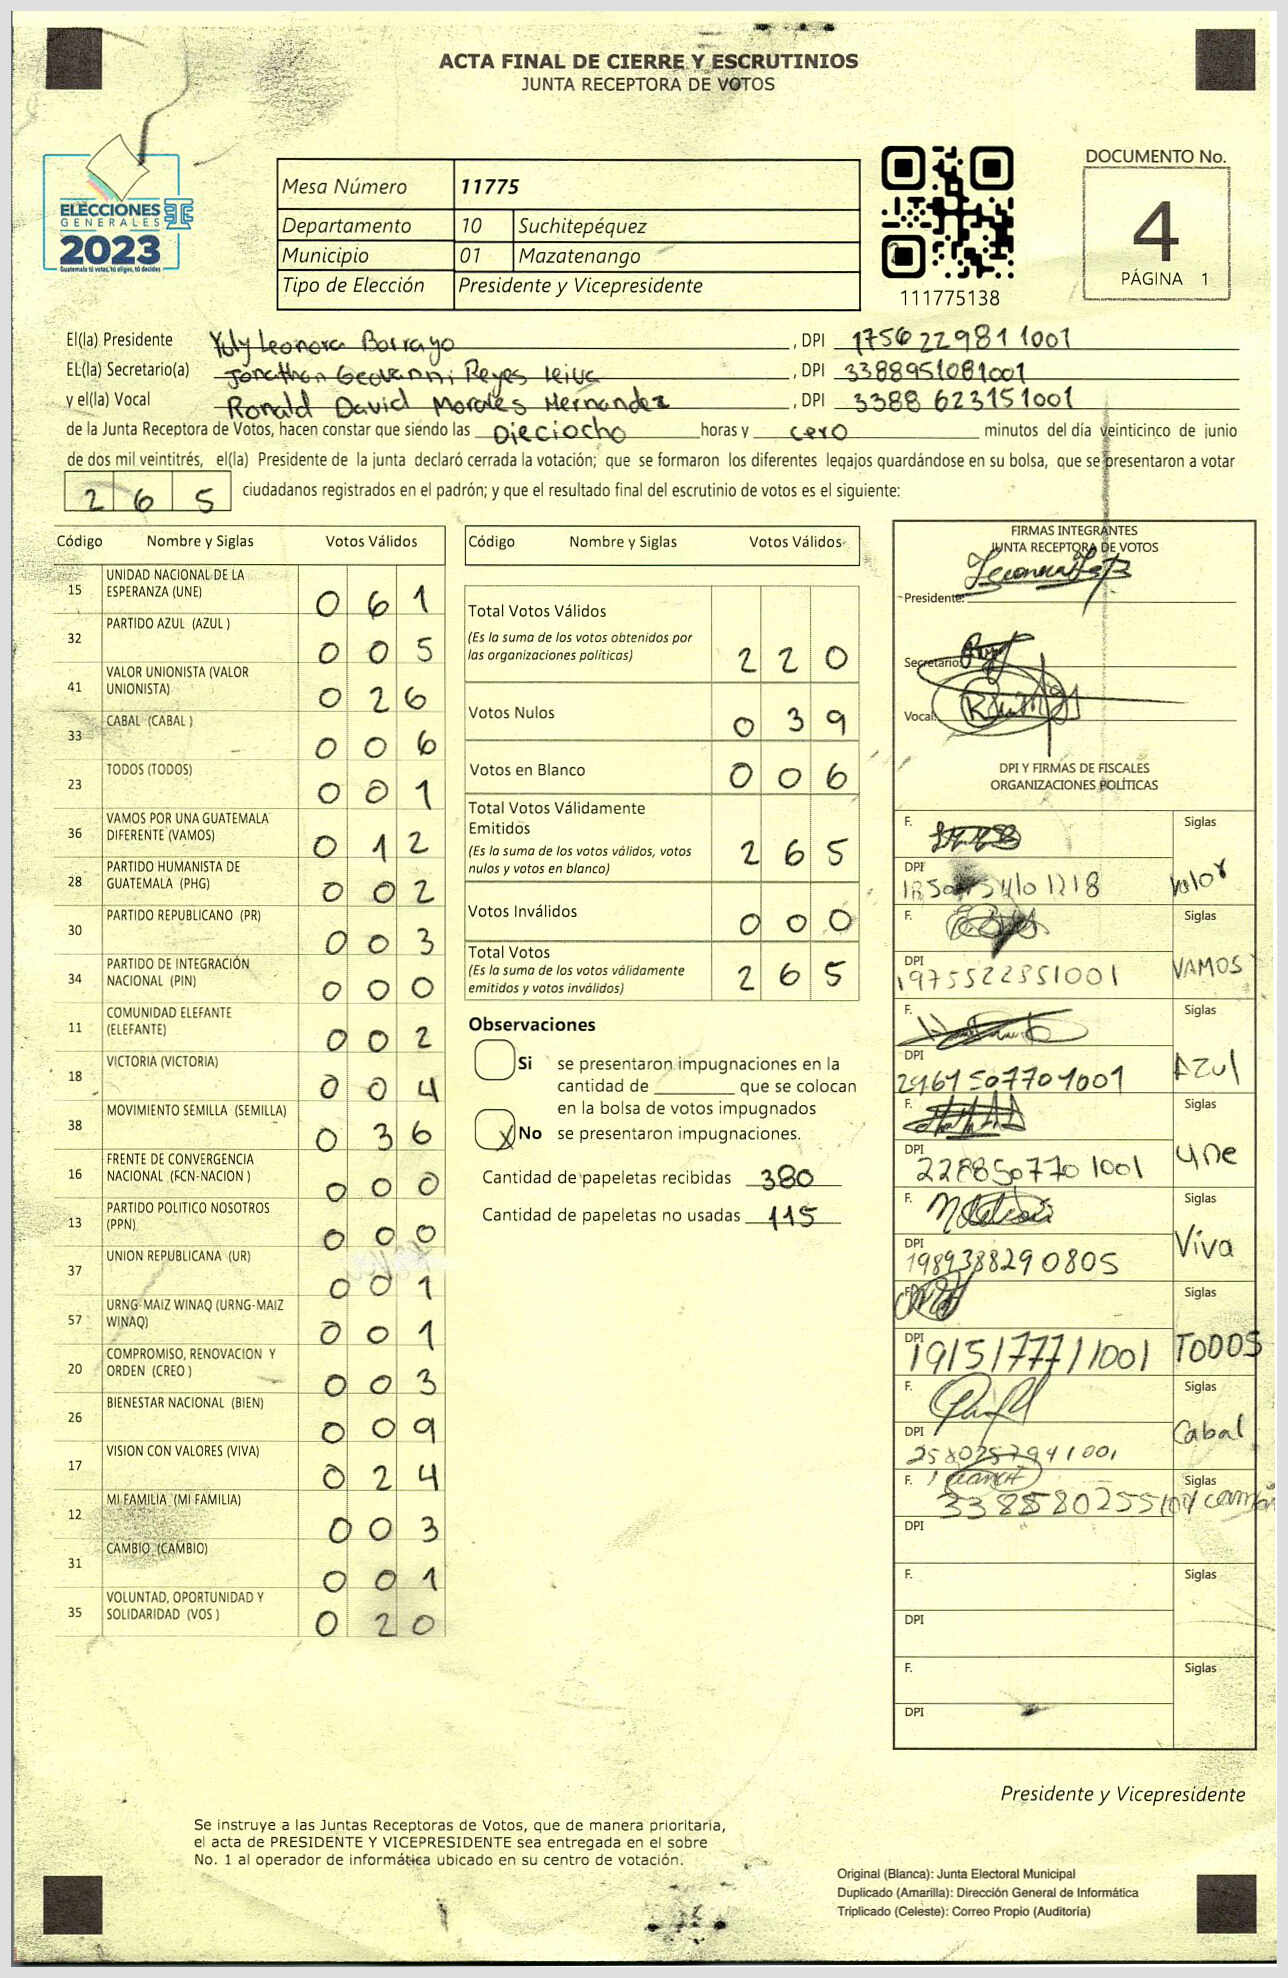 ACTA FINAL DE CIERRE Y ESCRUTINIOS
JUNTA RECEPTORA DE VOTOS
ELECCIONES
GENERALES
2023
Guatemala tú votas, tú eliges, tú decides
Mesa Número 11775
Departamento 10 Suchitepéquez
Municipio 01 Mazatenango
Tipo de Elección Presidente y Vicepresidente
111775138
DOCUMENTO No.
4
PÁGINA 1
El(la) Presidente Yuly Leonora Borrayo , DPI 1756229811001
EL(la) Secretario(a) Jonathan Geovanni Reyes leiva , DPI 3388951081001
y el(la) Vocal Ronald David Morales Hernandez , DPI 3388623151001
de la Junta Receptora de Votos, hacen constar que siendo las Dieciocho horas y cero minutos del día veinticinco de junio
de dos mil veintitrés, el(la) Presidente de la junta declaró cerrada la votación; que se formaron los diferentes legajos guardándose en su bolsa, que se presentaron a votar
265 ciudadanos registrados en el padrón; y que el resultado final del escrutinio de votos es el siguiente:
Código Nombre y Siglas Votos Válidos
15 UNIDAD NACIONAL DE LA
ESPERANZA (UNE) 061
32 PARTIDO AZUL (AZUL ) 005
41 VALOR UNIONISTA (VALOR
UNIONISTA) 026
33 CABAL (CABAL ) 006
23 TODOS (TODOS) 001
36 VAMOS POR UNA GUATEMALA
DIFERENTE (VAMOS) 012
28 PARTIDO HUMANISTA DE
GUATEMALA (PHG) 002
30 PARTIDO REPUBLICANO (PR) 003
34 PARTIDO DE INTEGRACIÓN
NACIONAL (PIN) 000
11 COMUNIDAD ELEFANTE
(ELEFANTE) 002
18 VICTORIA (VICTORIA) 004
38 MOVIMIENTO SEMILLA (SEMILLA) 036
16 FRENTE DE CONVERGENCIA
NACIONAL (FCN-NACION ) 000
13 PARTIDO POLITICO NOSOTROS
(PPN) 000
37 UNION REPUBLICANA (UR) 001
57 URNG-MAIZ WINAQ (URNG-MAIZ
WINAQ) 001
20 COMPROMISO, RENOVACION Y
ORDEN (CREO ) 003
26 BIENESTAR NACIONAL (BIEN) 009
17 VISION CON VALORES (VIVA) 024
12 MI FAMILIA (MI FAMILIA) 003
31 CAMBIO (CAMBIO) 001
35 VOLUNTAD, OPORTUNIDAD Y
SOLIDARIDAD (VOS ) 020
Código Nombre y Siglas Votos Válidos
Total Votos Válidos
(Es la suma de los votos obtenidos por
las organizaciones políticas) 220
Votos Nulos 039
Votos en Blanco 006
Total Votos Válidamente
Emitidos
(Es la suma de los votos válidos, votos
nulos y votos en blanco) 265
Votos Inválidos 000
Total Votos
(Es la suma de los votos válidamente
emitidos y votos inválidos) 265
Observaciones
Si se presentaron impugnaciones en la
cantidad de ________ que se colocan
en la bolsa de votos impugnados
X No se presentaron impugnaciones.
Cantidad de papeletas recibidas 380
Cantidad de papeletas no usadas 115
FIRMAS INTEGRANTES
JUNTA RECEPTORA DE VOTOS
Presidente:
Secretario:
Vocal:
DPI Y FIRMAS DE FISCALES
ORGANIZACIONES POLÍTICAS
F. Siglas
DPI
Valor
F. Siglas
DPI
1975522351001 VAMOS
F. Siglas
DPI
2961507701001 AZul
F. Siglas
DPI
228850770 1001 Une
F. Siglas
DPI
1989388290805 Viva
F. Siglas
DPI
1915177711001 TODOS
F. Siglas
DPI
Cabal
F. Siglas
DPI
F. Siglas
DPI
F. Siglas
DPI
Presidente y Vicepresidente
Se instruye a las Juntas Receptoras de Votos, que de manera prioritaria,
el acta de PRESIDENTE Y VICEPRESIDENTE sea entregada en el sobre
No. 1 al operador de informática ubicado en su centro de votación.
Original (Blanca): Junta Electoral Municipal
Duplicado (Amarilla): Dirección General de Informática
Triplicado (Celeste): Correo Propio (Auditoría)